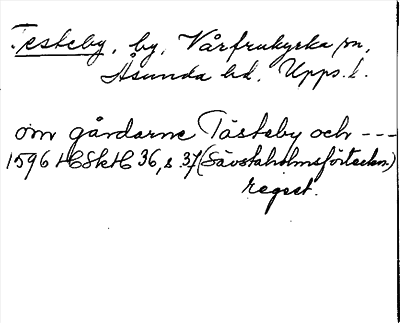 Testeby, by, Vårfrukyrka sn,
Åsunda hd, Upps. l.
om gårdarne Tästeby och ---
1596 HSkH 36, s 37 (Sävstaholmsförteckn.)
regest.